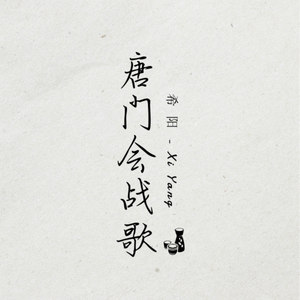 唐门会战歌
希阳 - Xi Yang